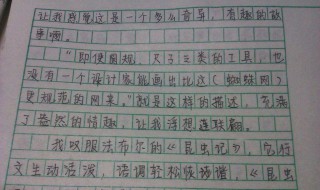 让我感觉这是一个多么奇异，有趣的故
事啊。
“即使圆规，尺子之类的工具，也
没有一个设计家能画出比这（蜘蛛网）
更规范的网来。”就是这样的描述，充满
了盎然的情趣，让我浮想连联翩。
我叹服法布尔的《昆虫记》，它行
文生动活泼，语调轻松恢谐谱，《昆虫